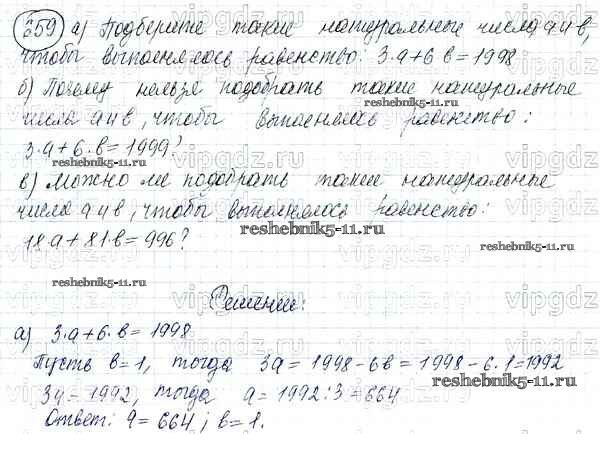 659 а) Подберите такие натуральные числа a и b,
чтобы выполнялось равенство: 3·a+6·b=1998
б) Почему нельзя подобрать такие натуральные
числа a и b, чтобы выполнялось равенство:
3·a+6·b=1999?
в) Можно ли подобрать такие натуральные
числа a и b, чтобы выполнялось равенство:
18·a+81·b=996?
Решение:
а) 3·a+6·b=1998
Пусть b=1, тогда 3a=1998-6b=1998-6·1=1992
3a=1992, тогда a=1992:3=664
Ответ: a=664; b=1.
reshebnik5-11.ru
vipgdz.ru